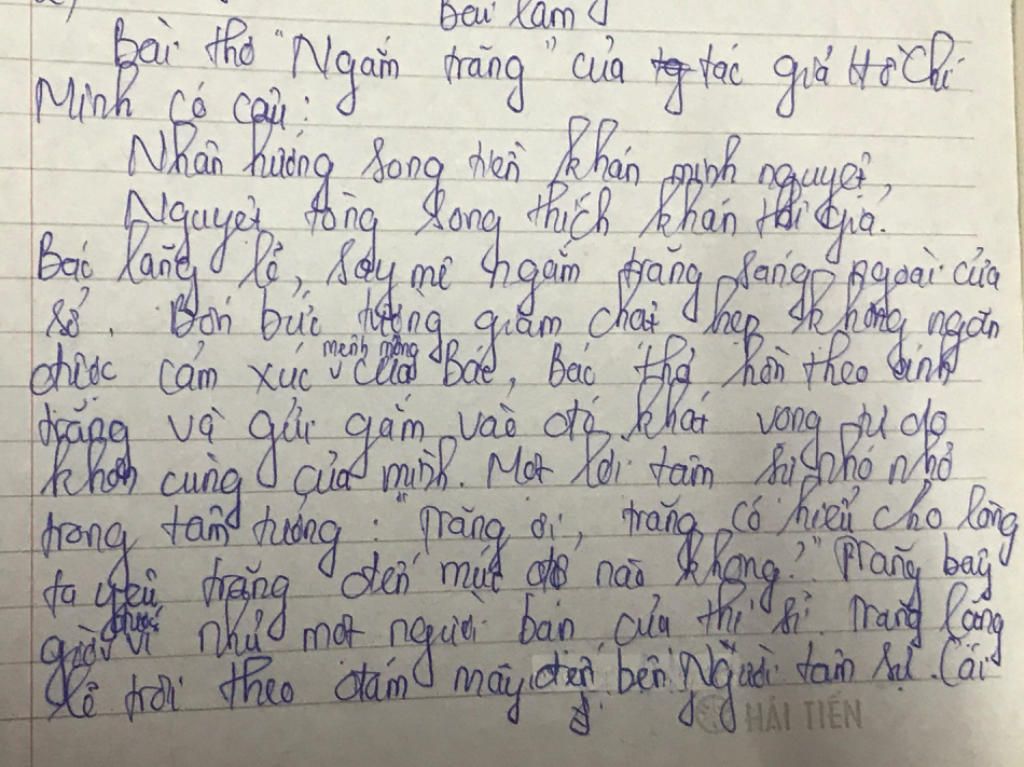 Bài làm
Bài thơ "Ngắm trăng" của tác giả Hồ Chí
Minh có câu:
Nhân hướng song tiền khán minh nguyệt,
Nguyệt tòng song thích khán thi gia.
Bác lặng lẽ, say mê ngắm trăng sáng ngoài cửa
sổ. Bốn bức tường giam chật hẹp không ngăn
được cảm xúc mênh mông của Bác, Bác thả hồn theo ánh
trăng và gửi gắm vào đó khát vọng tự do
khôn cùng của mình. Một lời tâm sự nho nhỏ
trong tâm tưởng: "Trăng ơi, trăng có hiểu cho lòng
ta yêu trăng đến mức độ nào không?" Trăng bây
giờ được ví như một người bạn của thi sĩ. Trăng lặng
lẽ trôi theo đám mây đến bên Người tâm sự. Cái
HẢI TIẾN